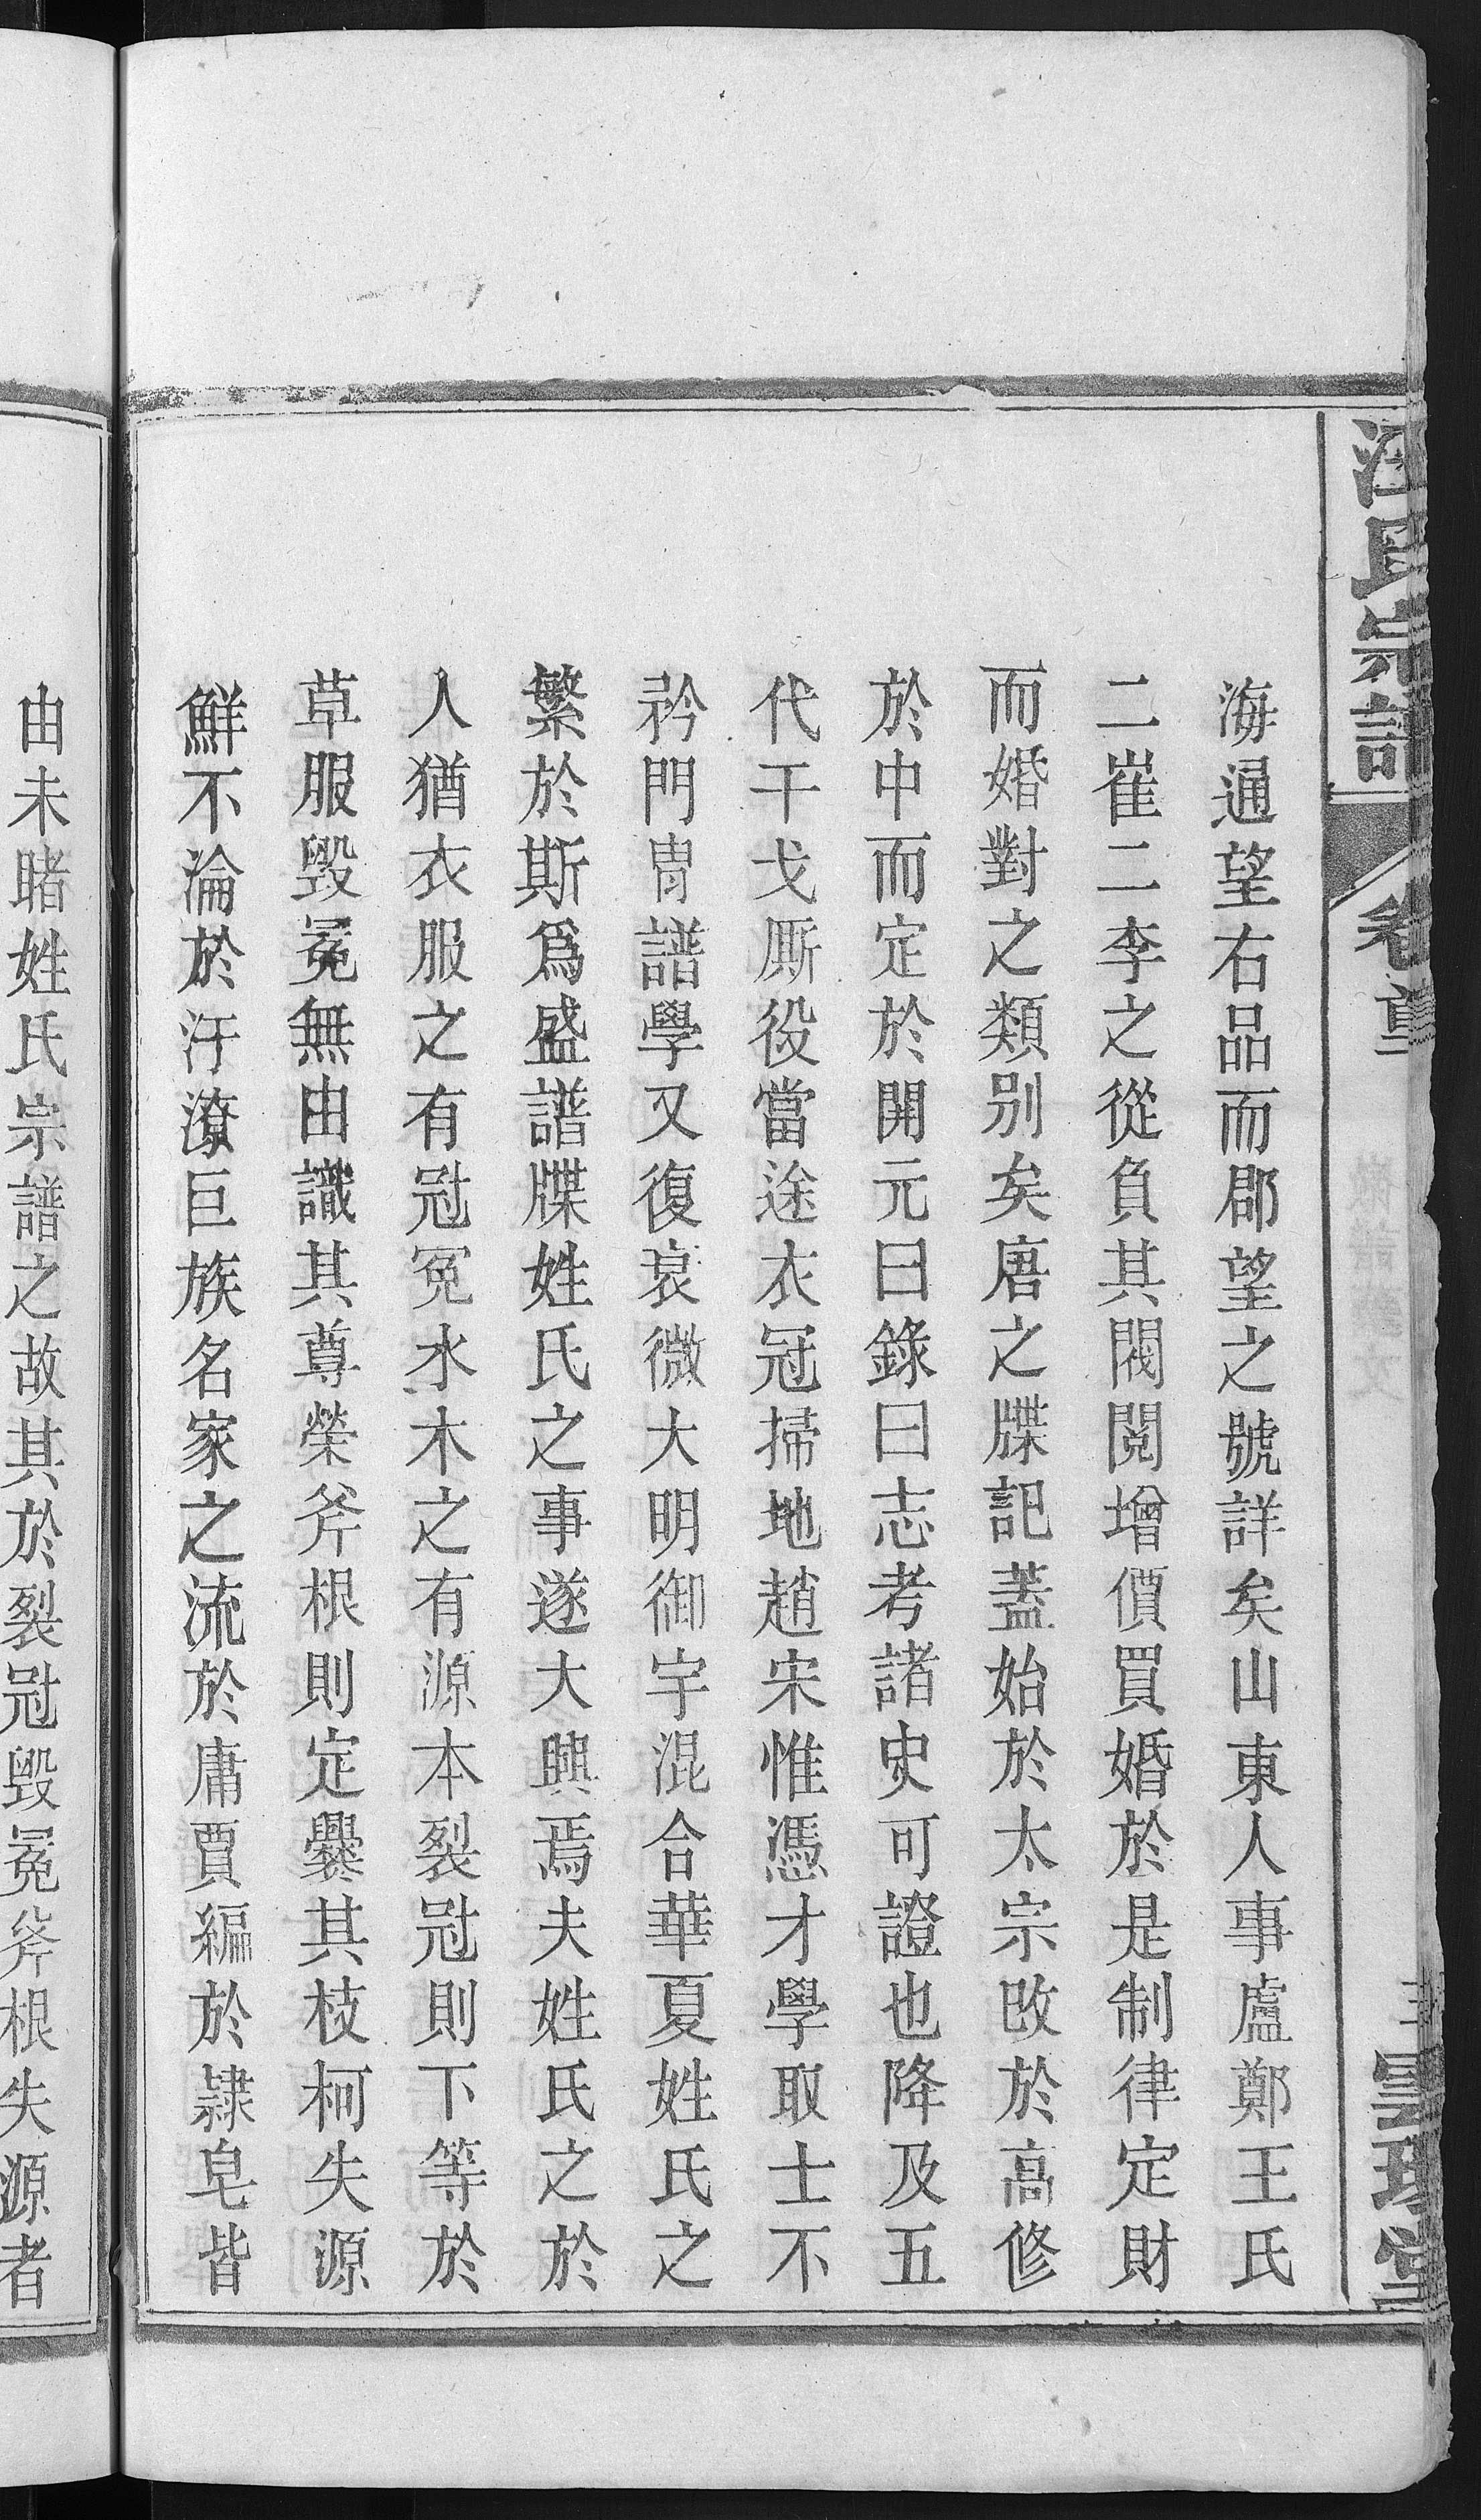 汪氏宗譜
卷首
海通望右品而郡望之號詳矣山東人事盧鄭王氏
二崔二李之從負其閥閱增價買婚於是制律定財
而婚對之類別矣唐之牒記蓋始於太宗改於高修
於中而定於開元曰錄曰志考諸史可證也降及五
代干戈厮役當途衣冠掃地趙宋惟憑才學取士不
矜門胄譜學又復衰微大明御宇混合華夏姓氏之
繁於斯爲盛譜牒姓氏之事遂大興焉夫姓氏之於
人猶衣服之有冠冕水木之有源本裂冠則下等於
草服毀冕無由識其尊榮斧根則定爨其枝柯失源
鮮不淪於汙潦巨族名家之流於庸賈編於隸皂皆
由未睹姓氏宗譜之故其於裂冠毀冕斧根失源者